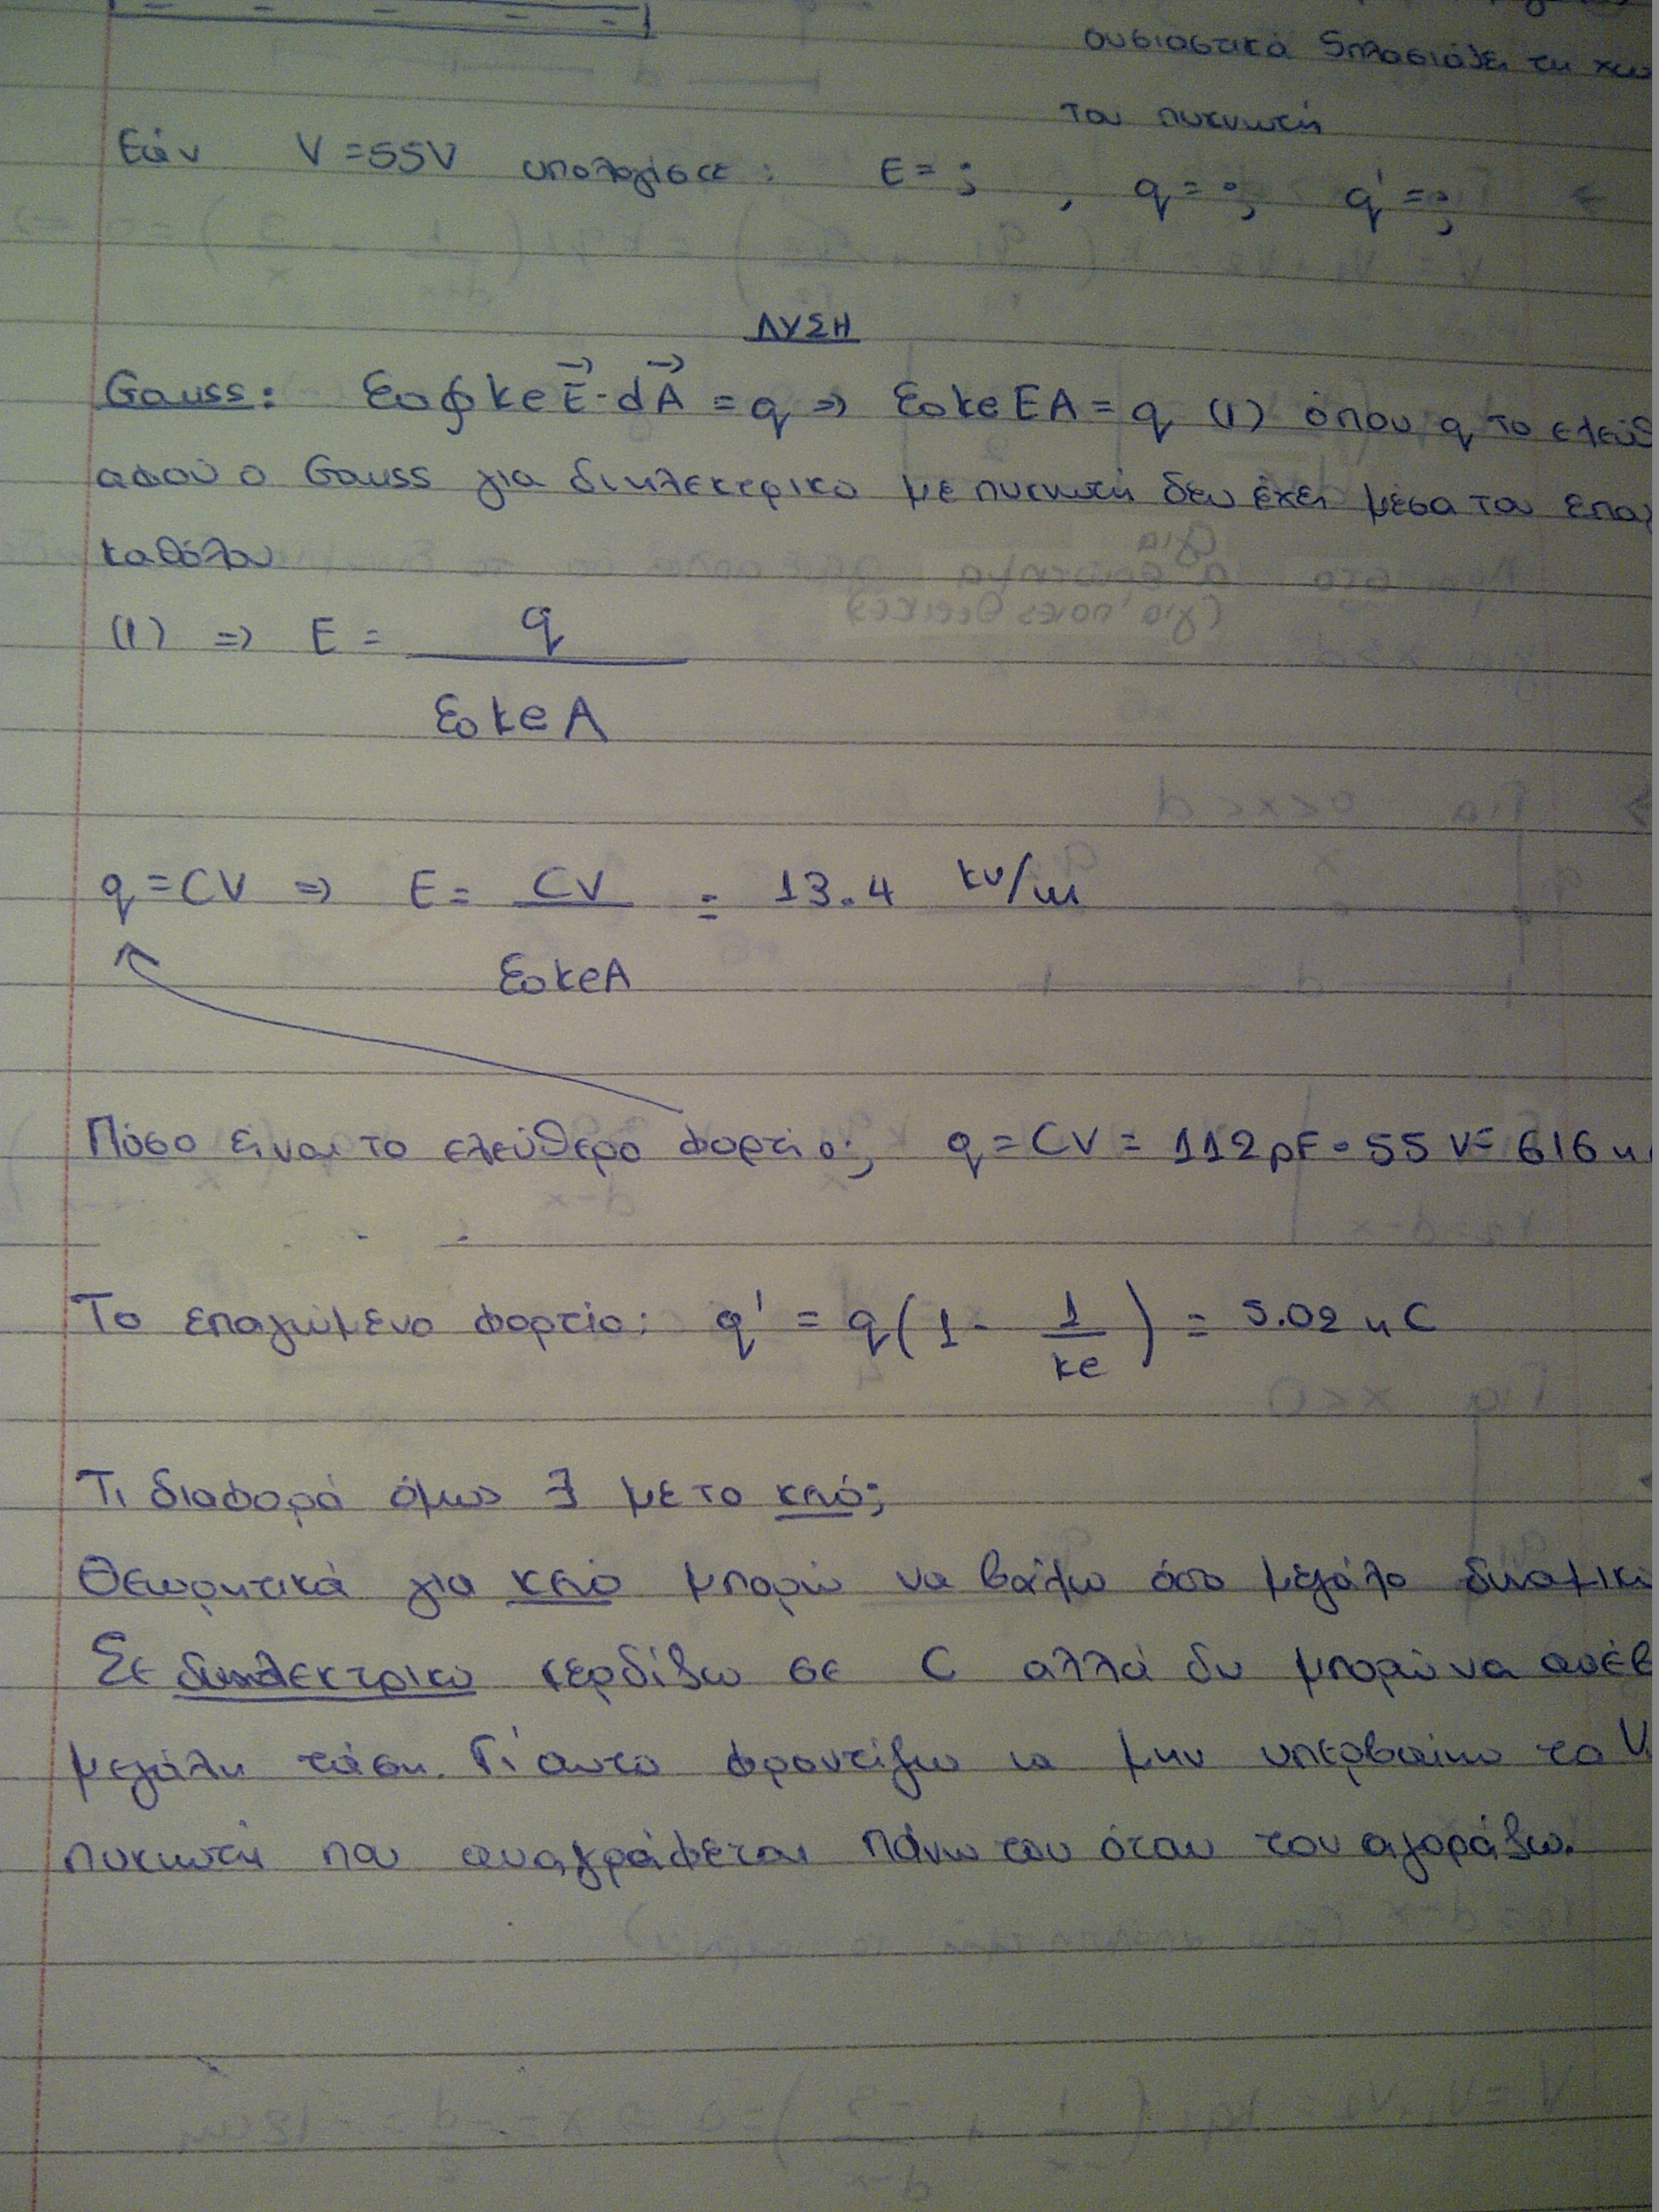 ουσιαστικά 5πλασιάζει τη χω
του πυκνωτή
Εάν V=55V υπολογίσετε: E=; , q=; q'=;
ΛΥΣΗ
Gauss: ε₀∮ke E⃗·dA⃗ = q ⇒ ε₀keEA = q (1) όπου q το ελεύθ
αφού ο Gauss για διηλεκτρικο με πυκνωτή δεν έχει μέσα του επαγ
καθόλου
(1) ⇒ E = q / ε₀keA
q=CV ⇒ E = CV / ε₀keA = 13.4 kV/m
Πόσο είναι το ελεύθερο φορτίο; q=CV = 112pF·55V = 616 n
Το επαγώμενο φορτίο: q' = q(1 - 1/ke) = 5.02 nC
Τι διαφορά όμως ∃ με το κενό;
Θεωρητικά για κενό μπορώ να βάλω όσο μεγάλο δυναμικό
Σε διηλεκτρικο κερδίζω σε C αλλά δν μπορώ να ανέβ
μεγάλη τάση. Γι'αυτο φροντίζω να μην υπερβαίνω το V
πυκνωτή που αναγράφεται πάνω του όταν τον αγοράζω.